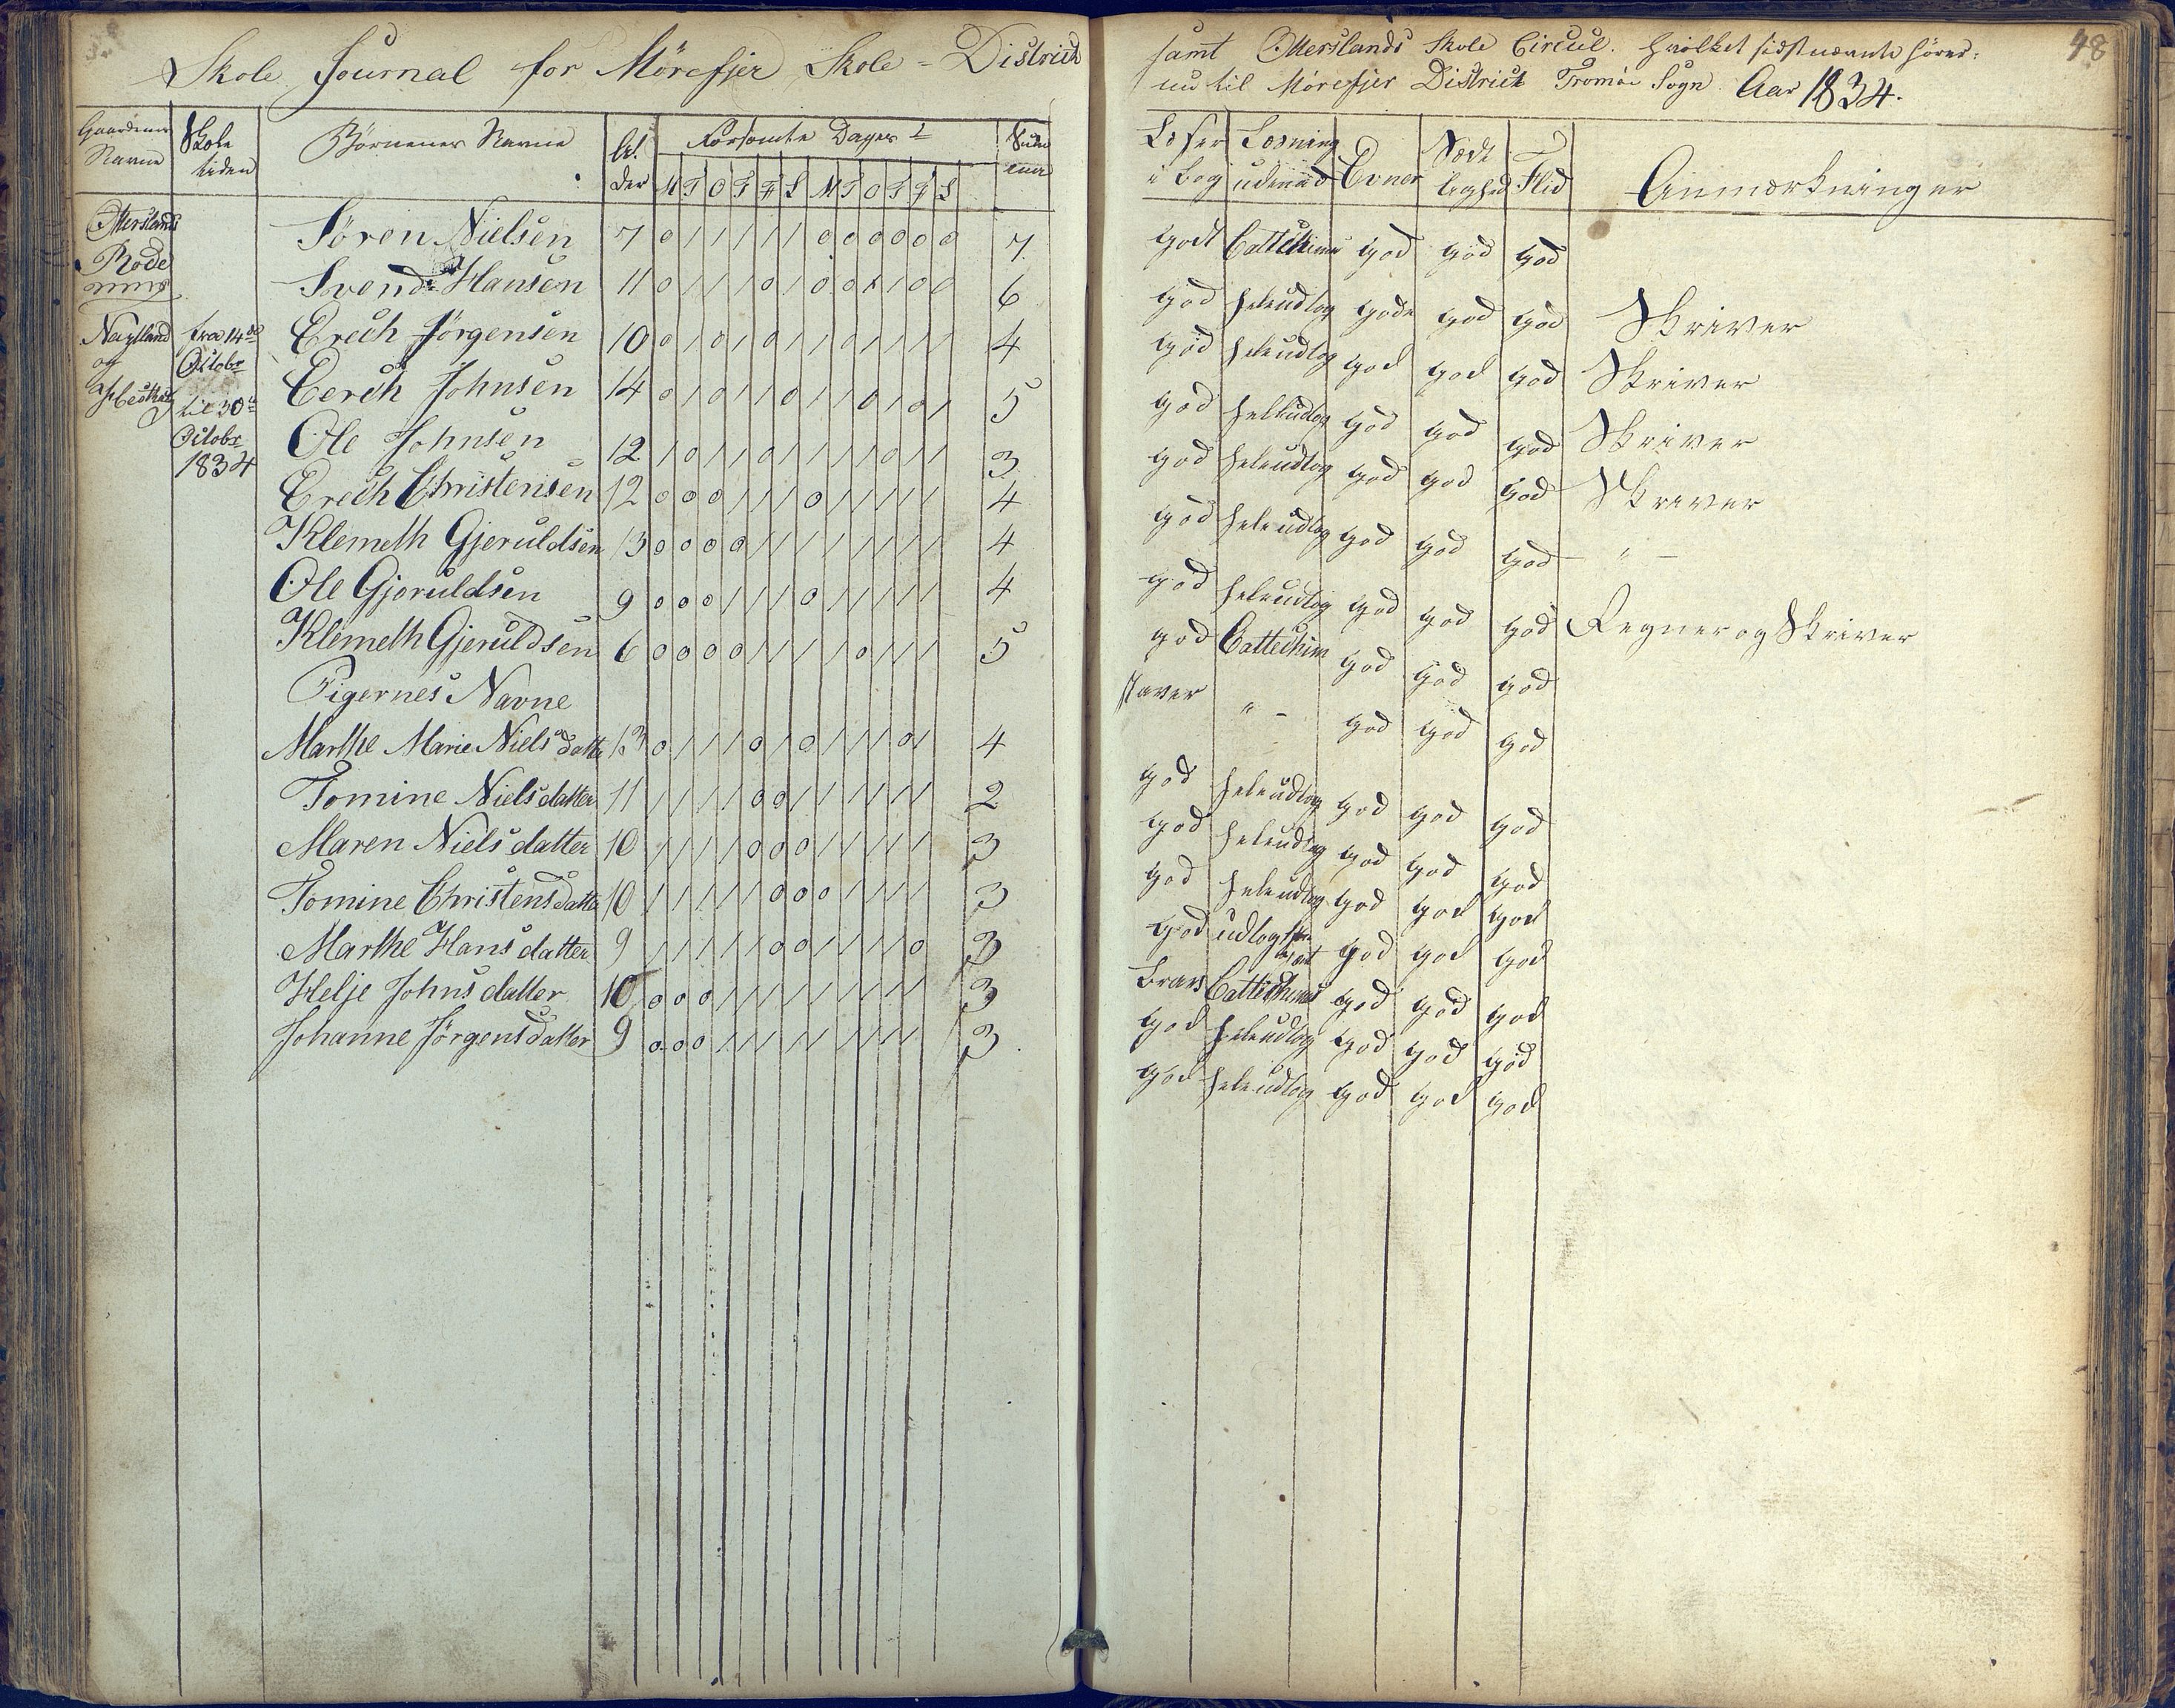 Skole Journal for Mörefjer Skole-District
Gaardenes Navne | Skole tiden | Börnenes Navne | Al der | Forsömte Dager | Sum
M T O T F L M T O T F L
Otterslands Rode
Sören Nielsen 7 0 / / / / / 0 0 0 0 0 0 7
Svend Hansen 11 0 / / / 0 / 0 0 / / 0 0 6
Nagelland og fra 14de Octobr til 30te Octobr 1834
Erech Jörgensen 10 0 / 0 / 0 / / 0 / / / / 4
Eerch Johnsen 14 0 / 0 / / 0 / / 0 / 0 / 5
Ole Johnsen 12 / 0 / / 0 / / / / 0 / / 3
Erech Christensen 12 0 0 0 / / / 0 / / / / / 4
Klemeth Gjeruldsen 13 0 0 0 0 / / / / / / / / 4
Ole Gjeruldsen 9 0 0 0 / / / 0 / / / / / 4
Klemeth Gjeruldsen 6 0 0 0 0 / / / / 0 / / / 5
Pigernes Navne
Marthe Marie Nielsdatter 13 0 / / / 0 / 0 / / / 0 / 4
Tomine Nielsdatter 11 / / / / 0 0 / / / / / / 2
Maren Nielsdatter 10 / / / / 0 0 0 / / / / / 3
Tomine Christensdatter 10 / / / / / 0 0 0 / / / / 3
Marthe Hansdatter 9 / / / / / 0 0 / / / / 0 3
Helje Johnsdatter 10 0 0 0 / / / / / / / / / 3
Johanne Jörgensdatter 9 0 0 0 / / / / / / / / / 3
48
samt Otterslands Skole Circul. hvilket sidstnævnte hörer
nu til Mörefjer District Tromöe Sogn Aar 1834.
Læser i bog | Læsning udenad | Evner | Sædelighed | Flid | Anmærkninger
godt Cattechimus god god god
god heleudlog gode god god Skriver
god heleudlog god god god Skriver
god heleudlog god god god Skriver
god heleudlog god god god Skriver
god heleudlog god god god — " —
god heleudlog god god god Regner og Skriver
god Cattechim god god god
staver " - god god god
god heleudlog god god god
god heleudlog god god god
god heleudlog god god god
god udlog god god god
brav Cattechimus god god god
god heleudlog god god god
god heleudlog god god god